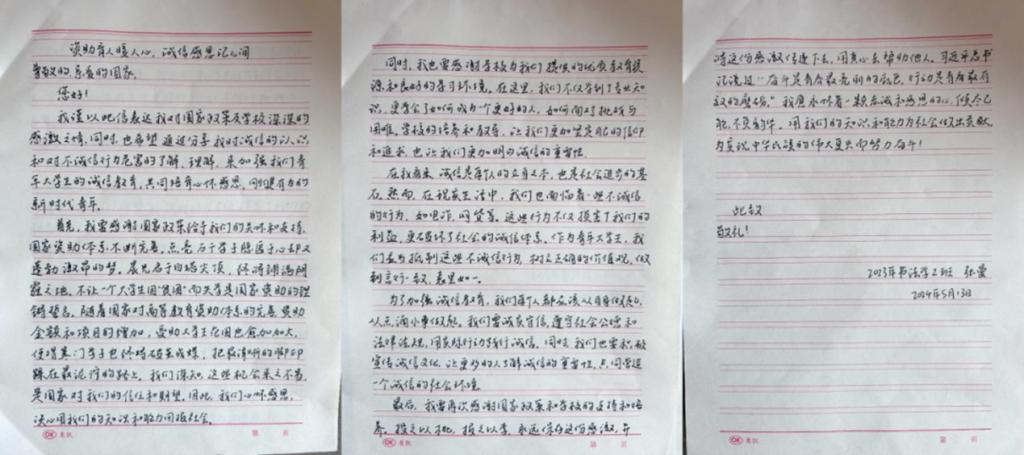 资助育人暖人心，诚信感恩记心间
尊敬的、亲爱的国家，
您好！
我谨以此信表达我对国家政策及学校深深的
感激之情，同时，也希望通过分享我对诚信的认识
和对不诚信行为危害的了解、理解，来加强我们青
年大学生的诚信教育，共同培育心怀感恩、
新时代青年。
首先，我要感谢国家政策给予我们的关怀和支持，
国家资助体系不断完善，点亮万千学子
之地。不让一个大学生因"贫困"而失学是国家资助的铿
锵誓言。随着国家对高等教育资助体系的完善，资助
金额和项目的增加，受助大学生范围也愈加加大，
踩在最泥泞的路上。我们深知，这些机会来之不易，
是国家对我们的信任和期望。因此，我们心怀感恩，
决心用我们的知识和能力回报社会。
同时，我也要感谢学校为我们提供的优质教育资
源和良好的学习环境。在这里，我们不仅学到了专业知
识，更学会了如何成为一个更好的人，如何面对挑战与
困难。学校的培养和教导，让我们更加坚定
和追求，也让我们更加明白诚信的重要性。
在我看来，诚信是每个人的立身之本，也是社会进步的基
石。然而，在现实生活中，我们也面临着一些不诚信
的行为，如
利益，更破坏了社会的诚信体系。作为青年大学生，我
们应当抵制这些不诚信行为，树立正确的价值观，做
到言行一致，表里如一。
为了加强诚信教育，我们每个人都应该从自身做起，
从点滴小事做起。我们要诚实守信，遵守社会公德和
法律法规，用实际行动践行诚信。同时，我们也要积极
宣传诚信文化，让更多的人了解诚信的重要性，共同营造
一个诚信的社会环境。
最后，我要再次感谢国家政策和学校的支持和培
养。投之以桃，报之以李，永远保存这份感激，并
将这份感激传递下去，用真心去帮助他人。习近平总书
记说过"奋斗是青春最亮丽的底色，行动是青年最有
效的磨砺。"我愿永怀着一颗赤诚和感恩的心，
不负韶华，用我们的知识和能力为社会做出贡献，
为实现中华民族的伟大复兴而努力奋斗！
此致
敬礼！
2023年书法学2班 张
2024年5月13日
第 页
第 页
第 页